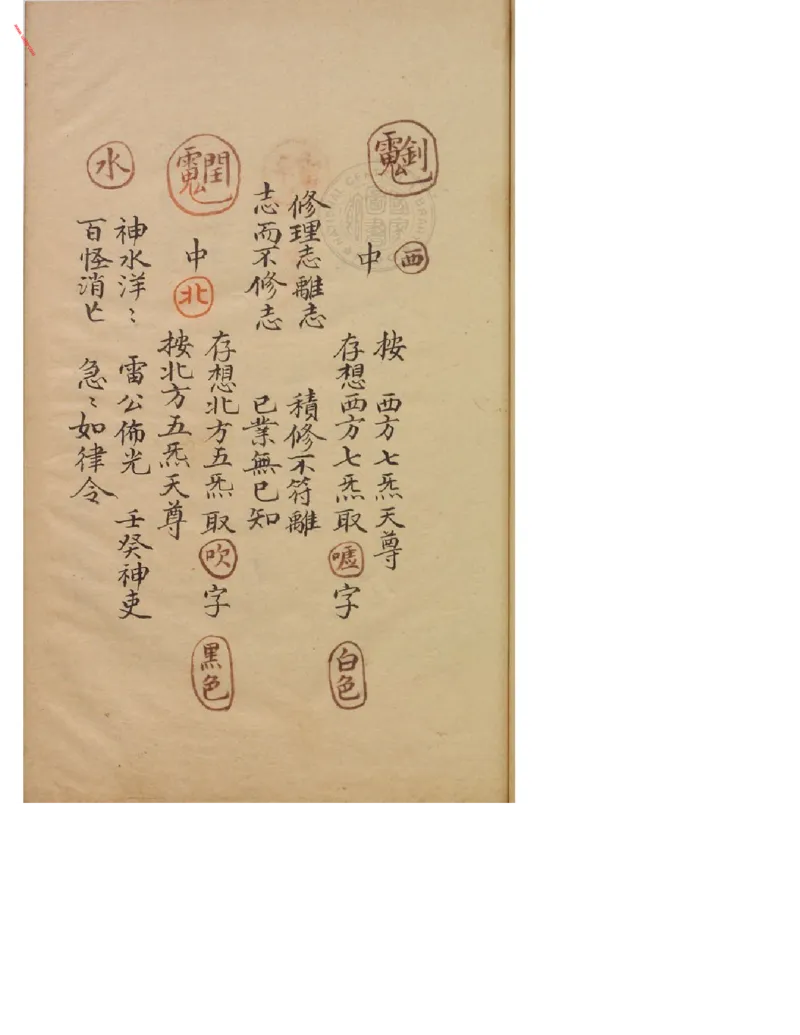 西
中
按 西方七炁天尊
存想西方七炁取噓字 白色
修理志離志 積修不符離
志而不修志 已業無已知
中
北
存想北方五炁取吹字 黑色
按北方五炁天尊
水
神水洋〻 雷公佈光 壬癸神吏
百怪消亡 急〻如律令